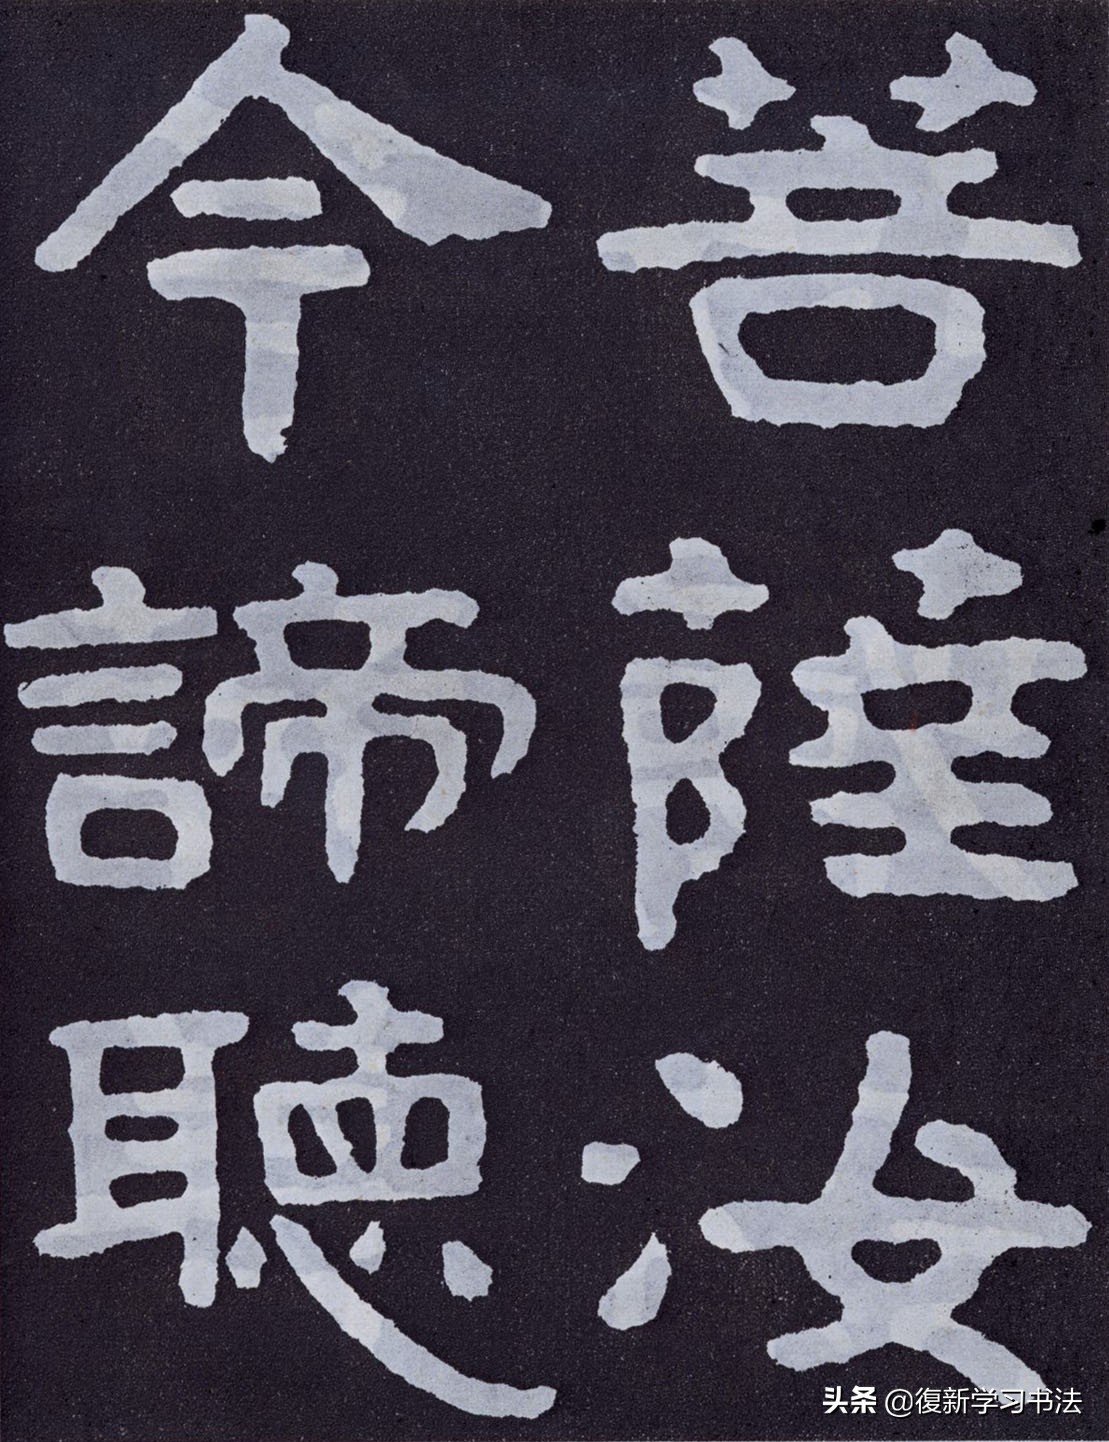 菩薩汝
今諦聽
头条 @復新学习书法